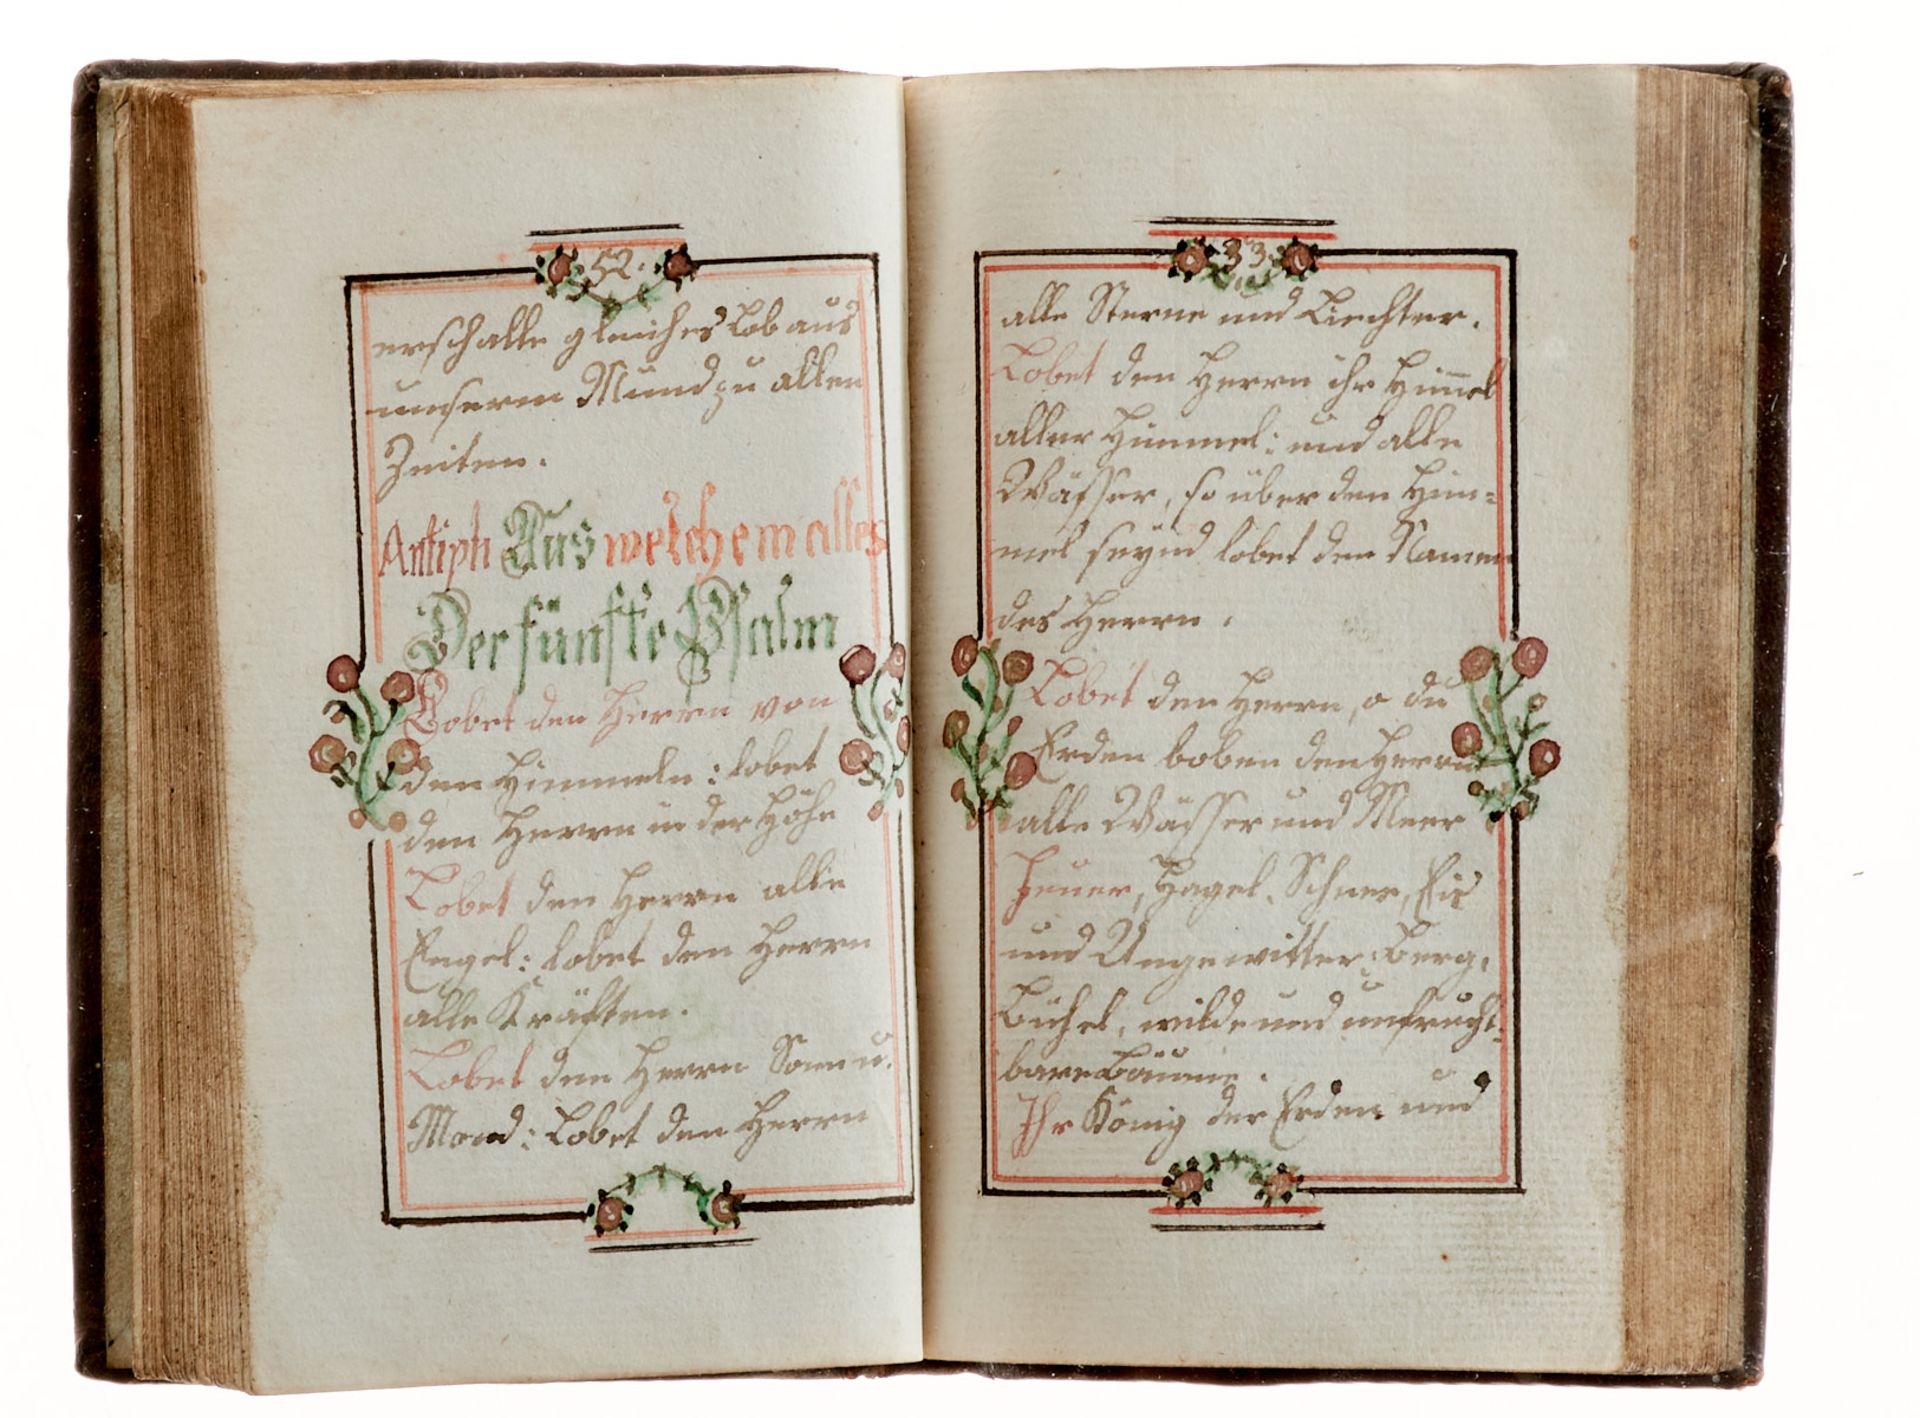 52.
erschalle gleiches Lob aus
unserem Mund zu allen
Zeiten.
Antiph Aus welchem alles
Der fünfte Psalm
Lobet den Herrn von
den Himmeln: lobet
den Herrn in der Höhe
Lobet den Herrn alle
Engel: lobet den Herrn
alle Kräften.
Lobet den Herrn Sonn u.
Mond: Lobet den Herrn
33.
alle Sterne und Liechter.
Lobet den Herrn ihr Him̅el
aller Himmel: und alle
Wässer, so über den Him=
mel seynd lobet den Namen
des Herrn.
Lobet den Herrn, o du
Erden loben den Herrn
alle Wässer und Meer
Feuer, Hagel, Schnee, Eis
und Ungewitter: Berg,
Bühel, wilde und unfrucht=
bare Bäume.
Ihr König der Erden und